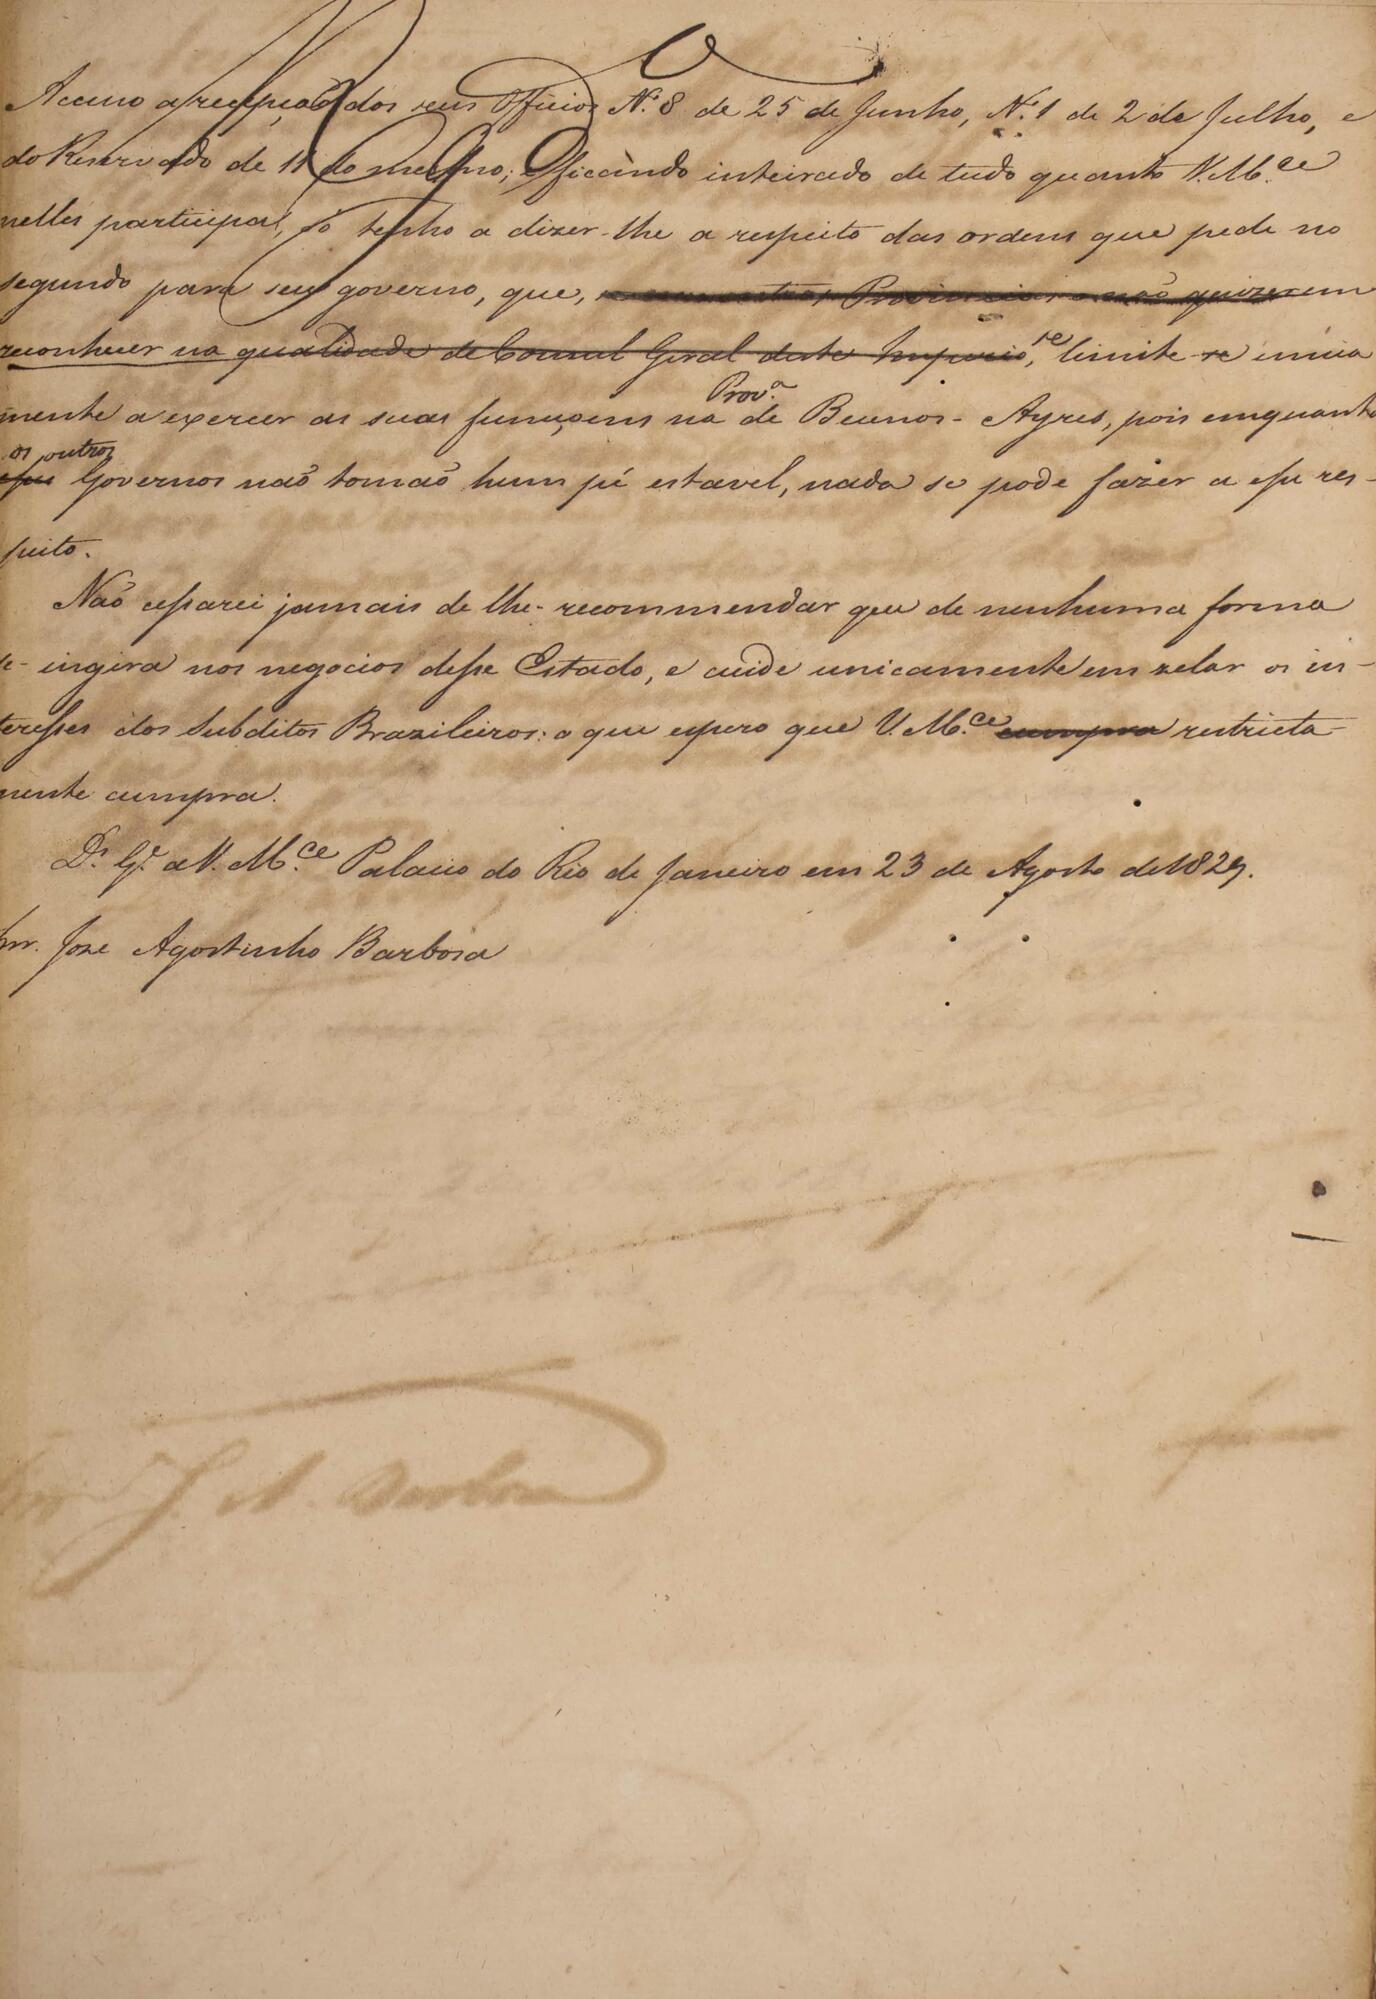 Accuso a recepçaõ dos seus Officios N.º 8 de 25 de Junho, N.º 1 de 2 de Julho, e
do Reservado de 11 do mesmo; e ficando inteirado de tudo quanto V. M.ce
nelles participa, só tenho a dizer-lhe a respeito das ordens que pede no
segundo para seu governo, que, Provincias não quizerem
reconhecer na qualidade de Consul Geral deste Imperio, se limite-se unica
mente a exercer as suas funcçoens na Prov.ª de Buenos-Ayres, pois emquanto
os outros Governos naõ tomaõ hum pé estavel, nada se pode fazer a esse res-
peito.
Naõ cessarei jamais de lhe-recommendar que de nenhuma forma
se-ingira nos negocios desse Estado, e cuide unicamente em zelar os in-
teresses dos Subditos Brazileiros: o que espero que V. M.ce cumpra restricta-
mente cumpra.
D.s G.e a V. M.ce Palacio do Rio de Janeiro em 23 de Agosto de 1829.
Snr. Joze Agostinho Barbosa